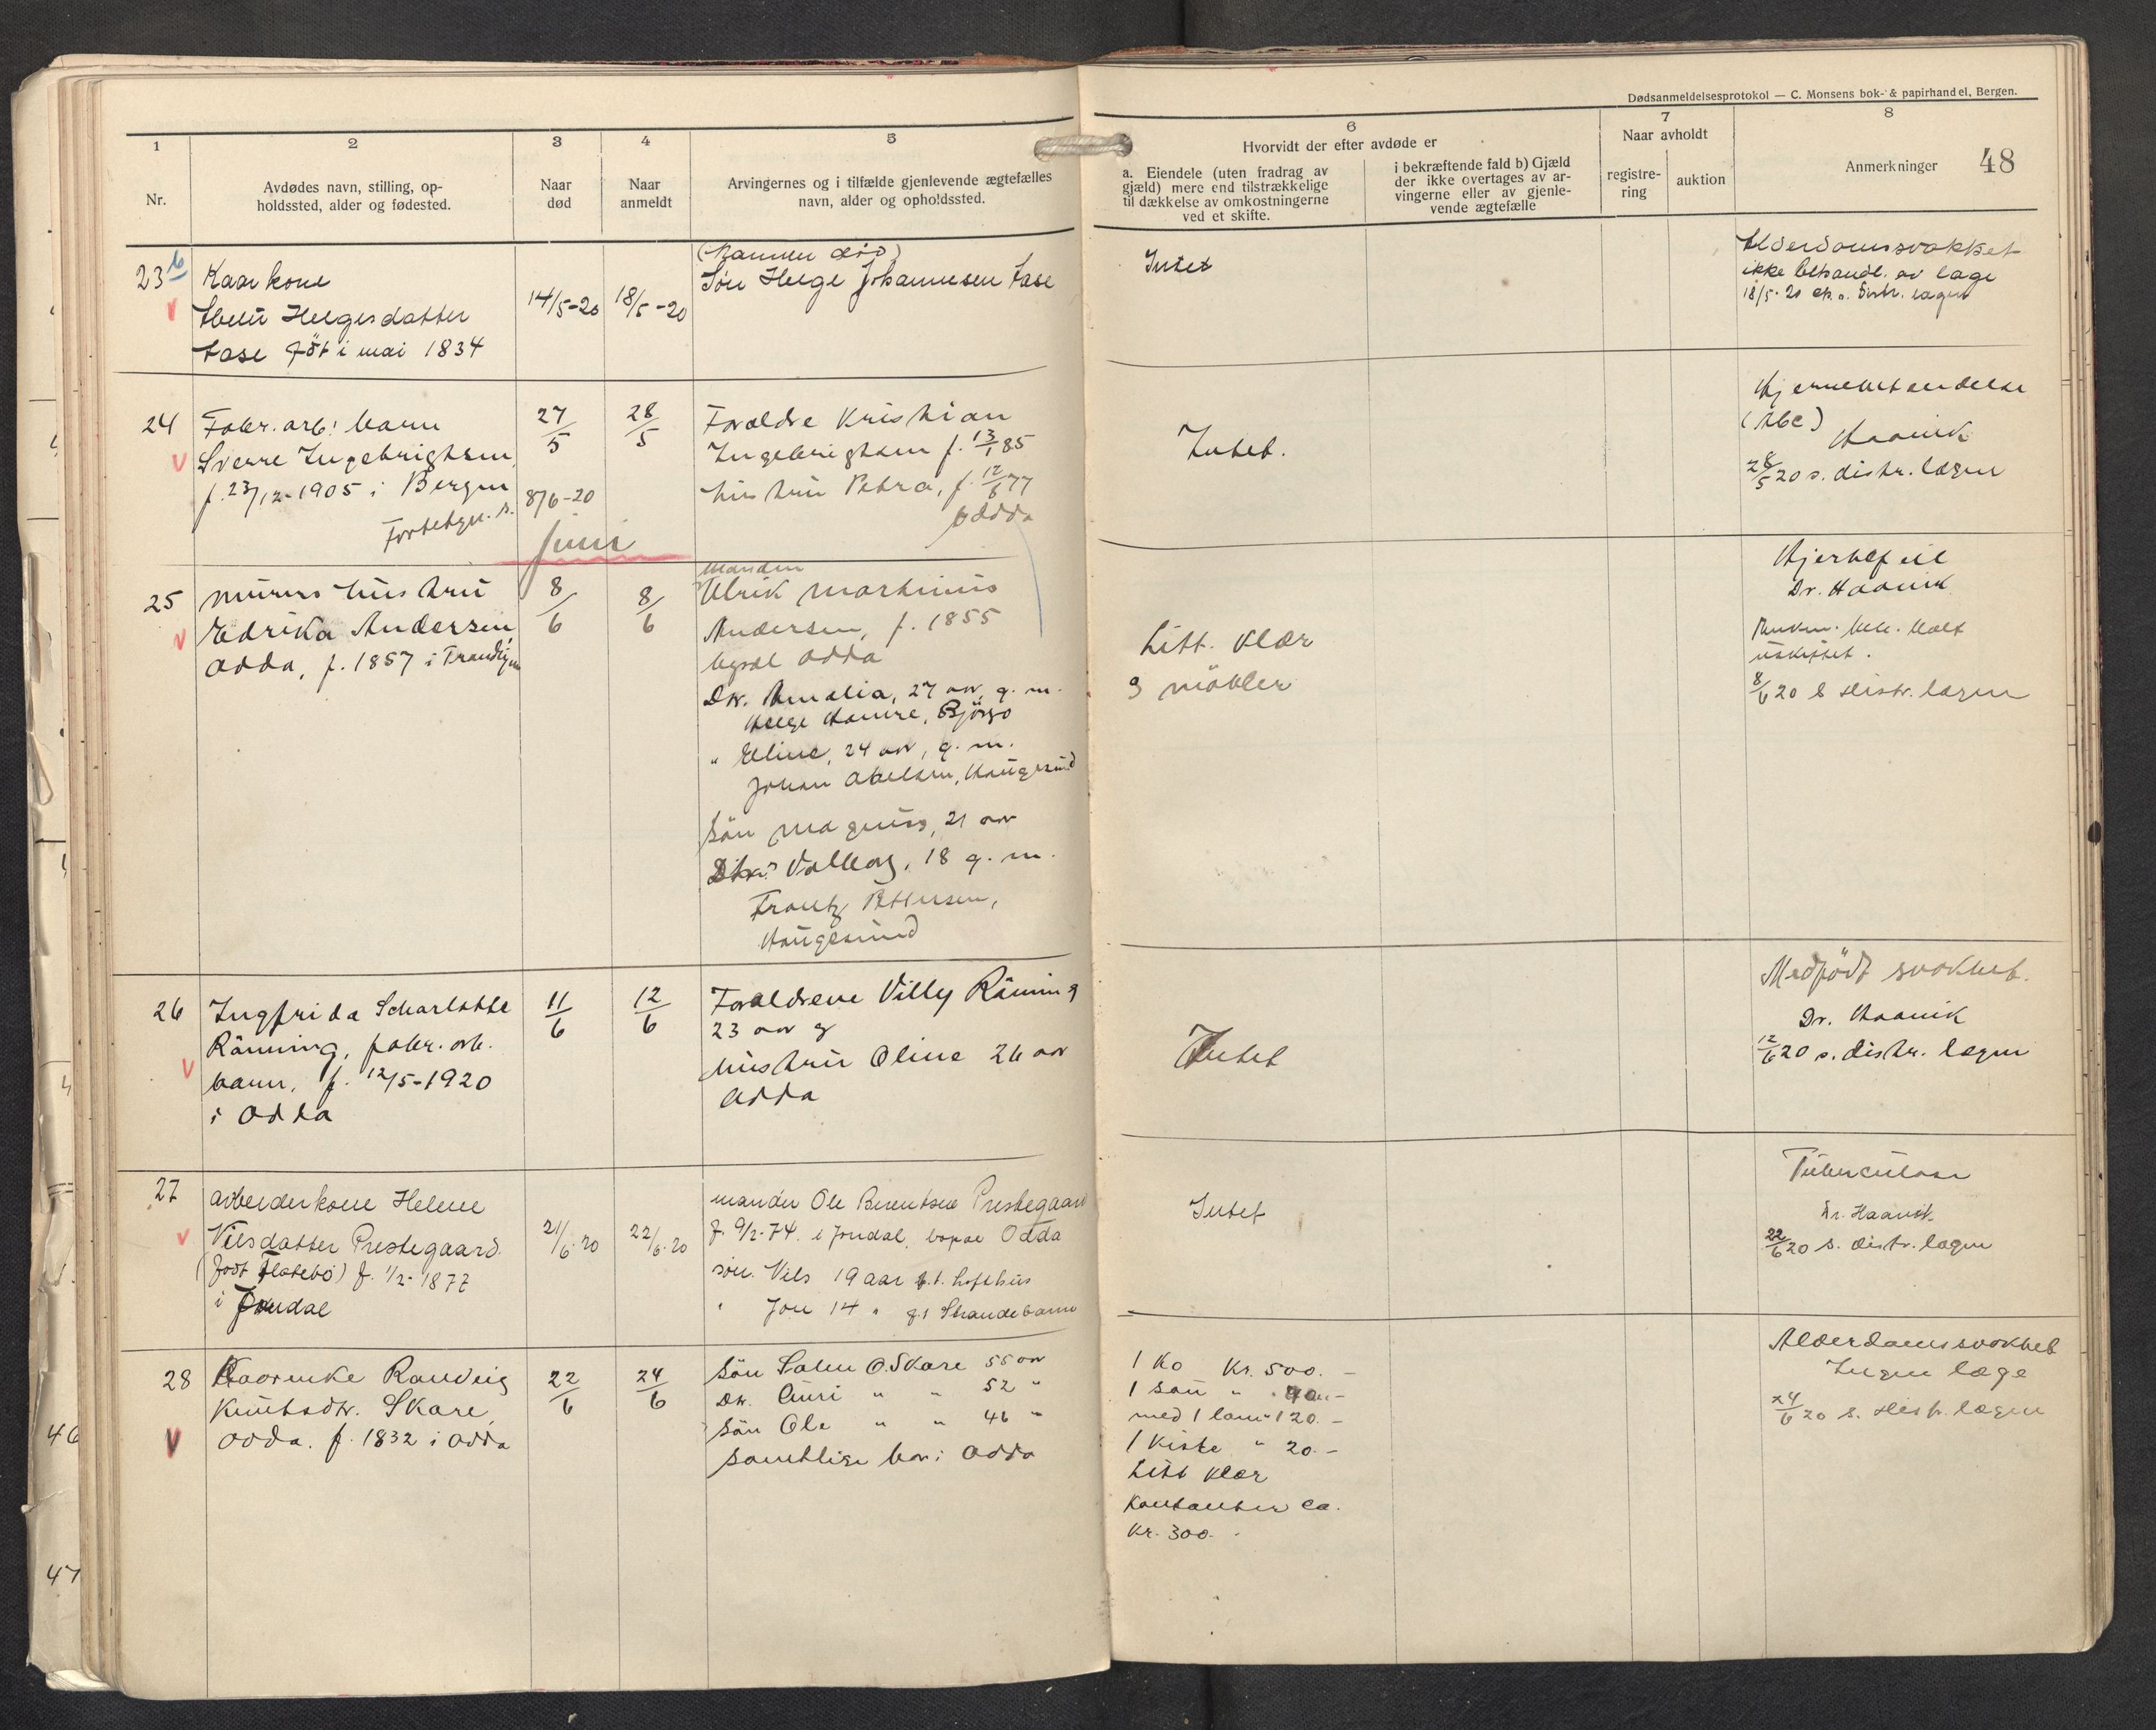 Dødsanmeldelsesprotokol — C. Monsens bok- & papirhandel, Bergen.
48
1
Nr.
2
Avdødes navn, stilling, op-
holdssted, alder og fødested.
3
Naar
død
4
Naar
anmeldt
5
Arvingernes og i tilfælde gjenlevende ægtefælles
navn, alder og opholdssted.
6
Hvorvidt der efter avdøde er
a. Eiendele (uten fradrag av
gjæld) mere end tilstrækkelige
til dækkelse av omkostningerne
ved et skifte.
i bekræftende fald b) Gjæld
der ikke overtages av ar-
vingerne eller av gjenle-
vende ægtefælle
7
Naar avholdt
registre-
ring
auktion
8
Anmerkninger
23 b
Kaarkone
Helgesdatter
føt i mai 1834
14/5-20
18/5-20
(Mannen død)
Søn Helge Johannesen
Intet
Alderdomssvakket
ikke behandl. av læge
18/5-20 s. distr. lægen
24
Fabr. arb. barn
Sverre Ingebrigtsen,
f. 23/12-1905 i Bergen
27/5
28/5
8/6-20
Forældre Kristian
Ingebrigtsen f. 13/1 85
hustru Petra, f. 12/6 77
Odda
Intet.
Haavik
28/5 20 s. distr. lægen
Juni
25
Murers hustru
Edrika Andersen
Odda, f. 1857 i
8/6
8/6
Manden
Ulrik Martinus
Andersen, f. 1855
bopæl Odda
Dtr. Amalia, 27 aar, g. m.
Helge Hamre,
" Eline, 24 aar, g. m.
Johan Abelsen, Haugesund
Søn Magnus, 21 aar
Valborg, 18 g. m.
Frantz Pettersen,
Haugesund
Litt. klær
g møbler
Hjertefeil
Dr. Haavik
uskiftet.
8/6 20 s distr. lægen
26
Ingfrida Scharlotte
Rånning, fabr. arb.
barn, f. 12/5-1920
i Odda
11/6
12/6
Forældrene Villy Rånning
23 aar g
hustru Oline 26 aar
Odda
Intet
Medfødt svakhet.
Dr. Haavik
12/6 20 s. distr. lægen
27
arbeiderkone Helene
Nilsdatter Prestegaard
(født Flatebø) f. 1/2-1877
i Jondal
21/6-20
22/6-20
manden Ole Berentsen Prestegaard
f. 9/2-74. i Jondal, bopæl Odda
søn. Nils 19 aar p.t. Lofthus
" Jon 14 " p.t Strandebarm
Intet
Tuberculose
Dr. Haavik
22/6 20 s. distr. lægen
28
Randveig
Knutsdtr. Skare,
Odda. f. 1832 i Odda
22/6
24/6
Søn O. Skare 55 aar
Dtr. Guri " " 52 "
Søn Ole " " 46 "
samtlige bor i Odda
1 Ko Kr. 500. -
1 sau "
med 1 lam " 120. -
1 Kiste " 20. -
Litt klær
Kontanter ca.
Kr. 300. -
Alderdomssvakhet
Ingen læge
24/6 20 s. distr. lægen
46
47